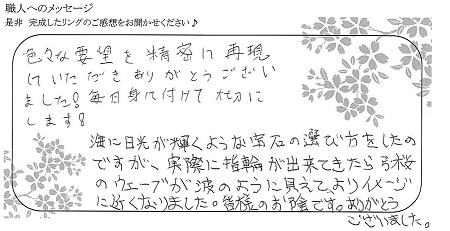 職人へのメッセージ
是非 完成したリングのご感想をお聞かせください♪
色々な要望を精密に再現
していただきありがとうござい
ました!毎日身に付けて大切に
します!
海に日光が輝くような宝石の選び方をしたの
ですが、実際に指輪が出来てきたら弓桜
のウェーブが波のように見えて、よりイメージ
に近くなりました。皆様のお陰です。ありがとう
ございました。